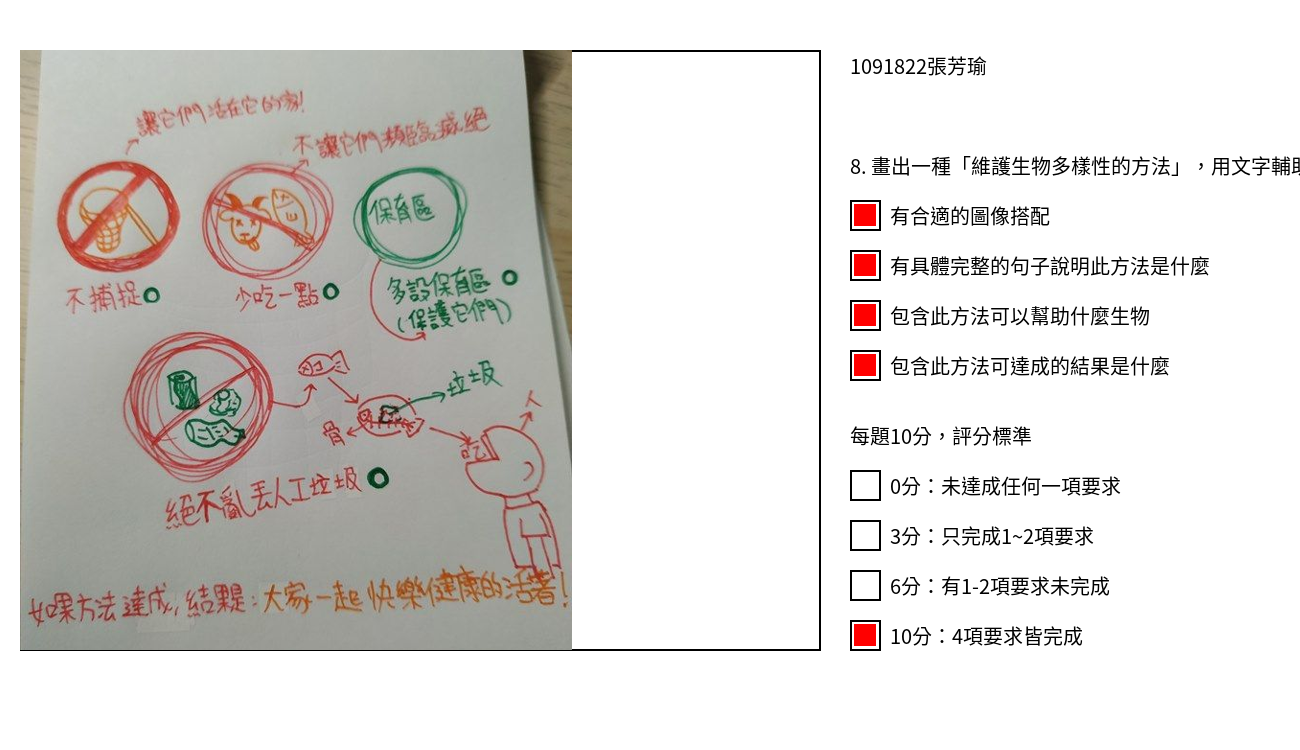 讓它們活在它的家!
不讓它們瀕臨滅絕
保育區
不捕捉
少吃一點
多設保育區
(保護它們)
垃圾
骨
吃
人
絕不亂丟人工垃圾
如果方法達成,結果是:大家一起快樂健康的活著!
1091822張芳瑜
8. 畫出一種「維護生物多樣性的方法」，用文字輔助
有合適的圖像搭配
有具體完整的句子說明此方法是什麼
包含此方法可以幫助什麼生物
包含此方法可達成的結果是什麼
每題10分，評分標準
0分：未達成任何一項要求
3分：只完成1~2項要求
6分：有1-2項要求未完成
10分：4項要求皆完成